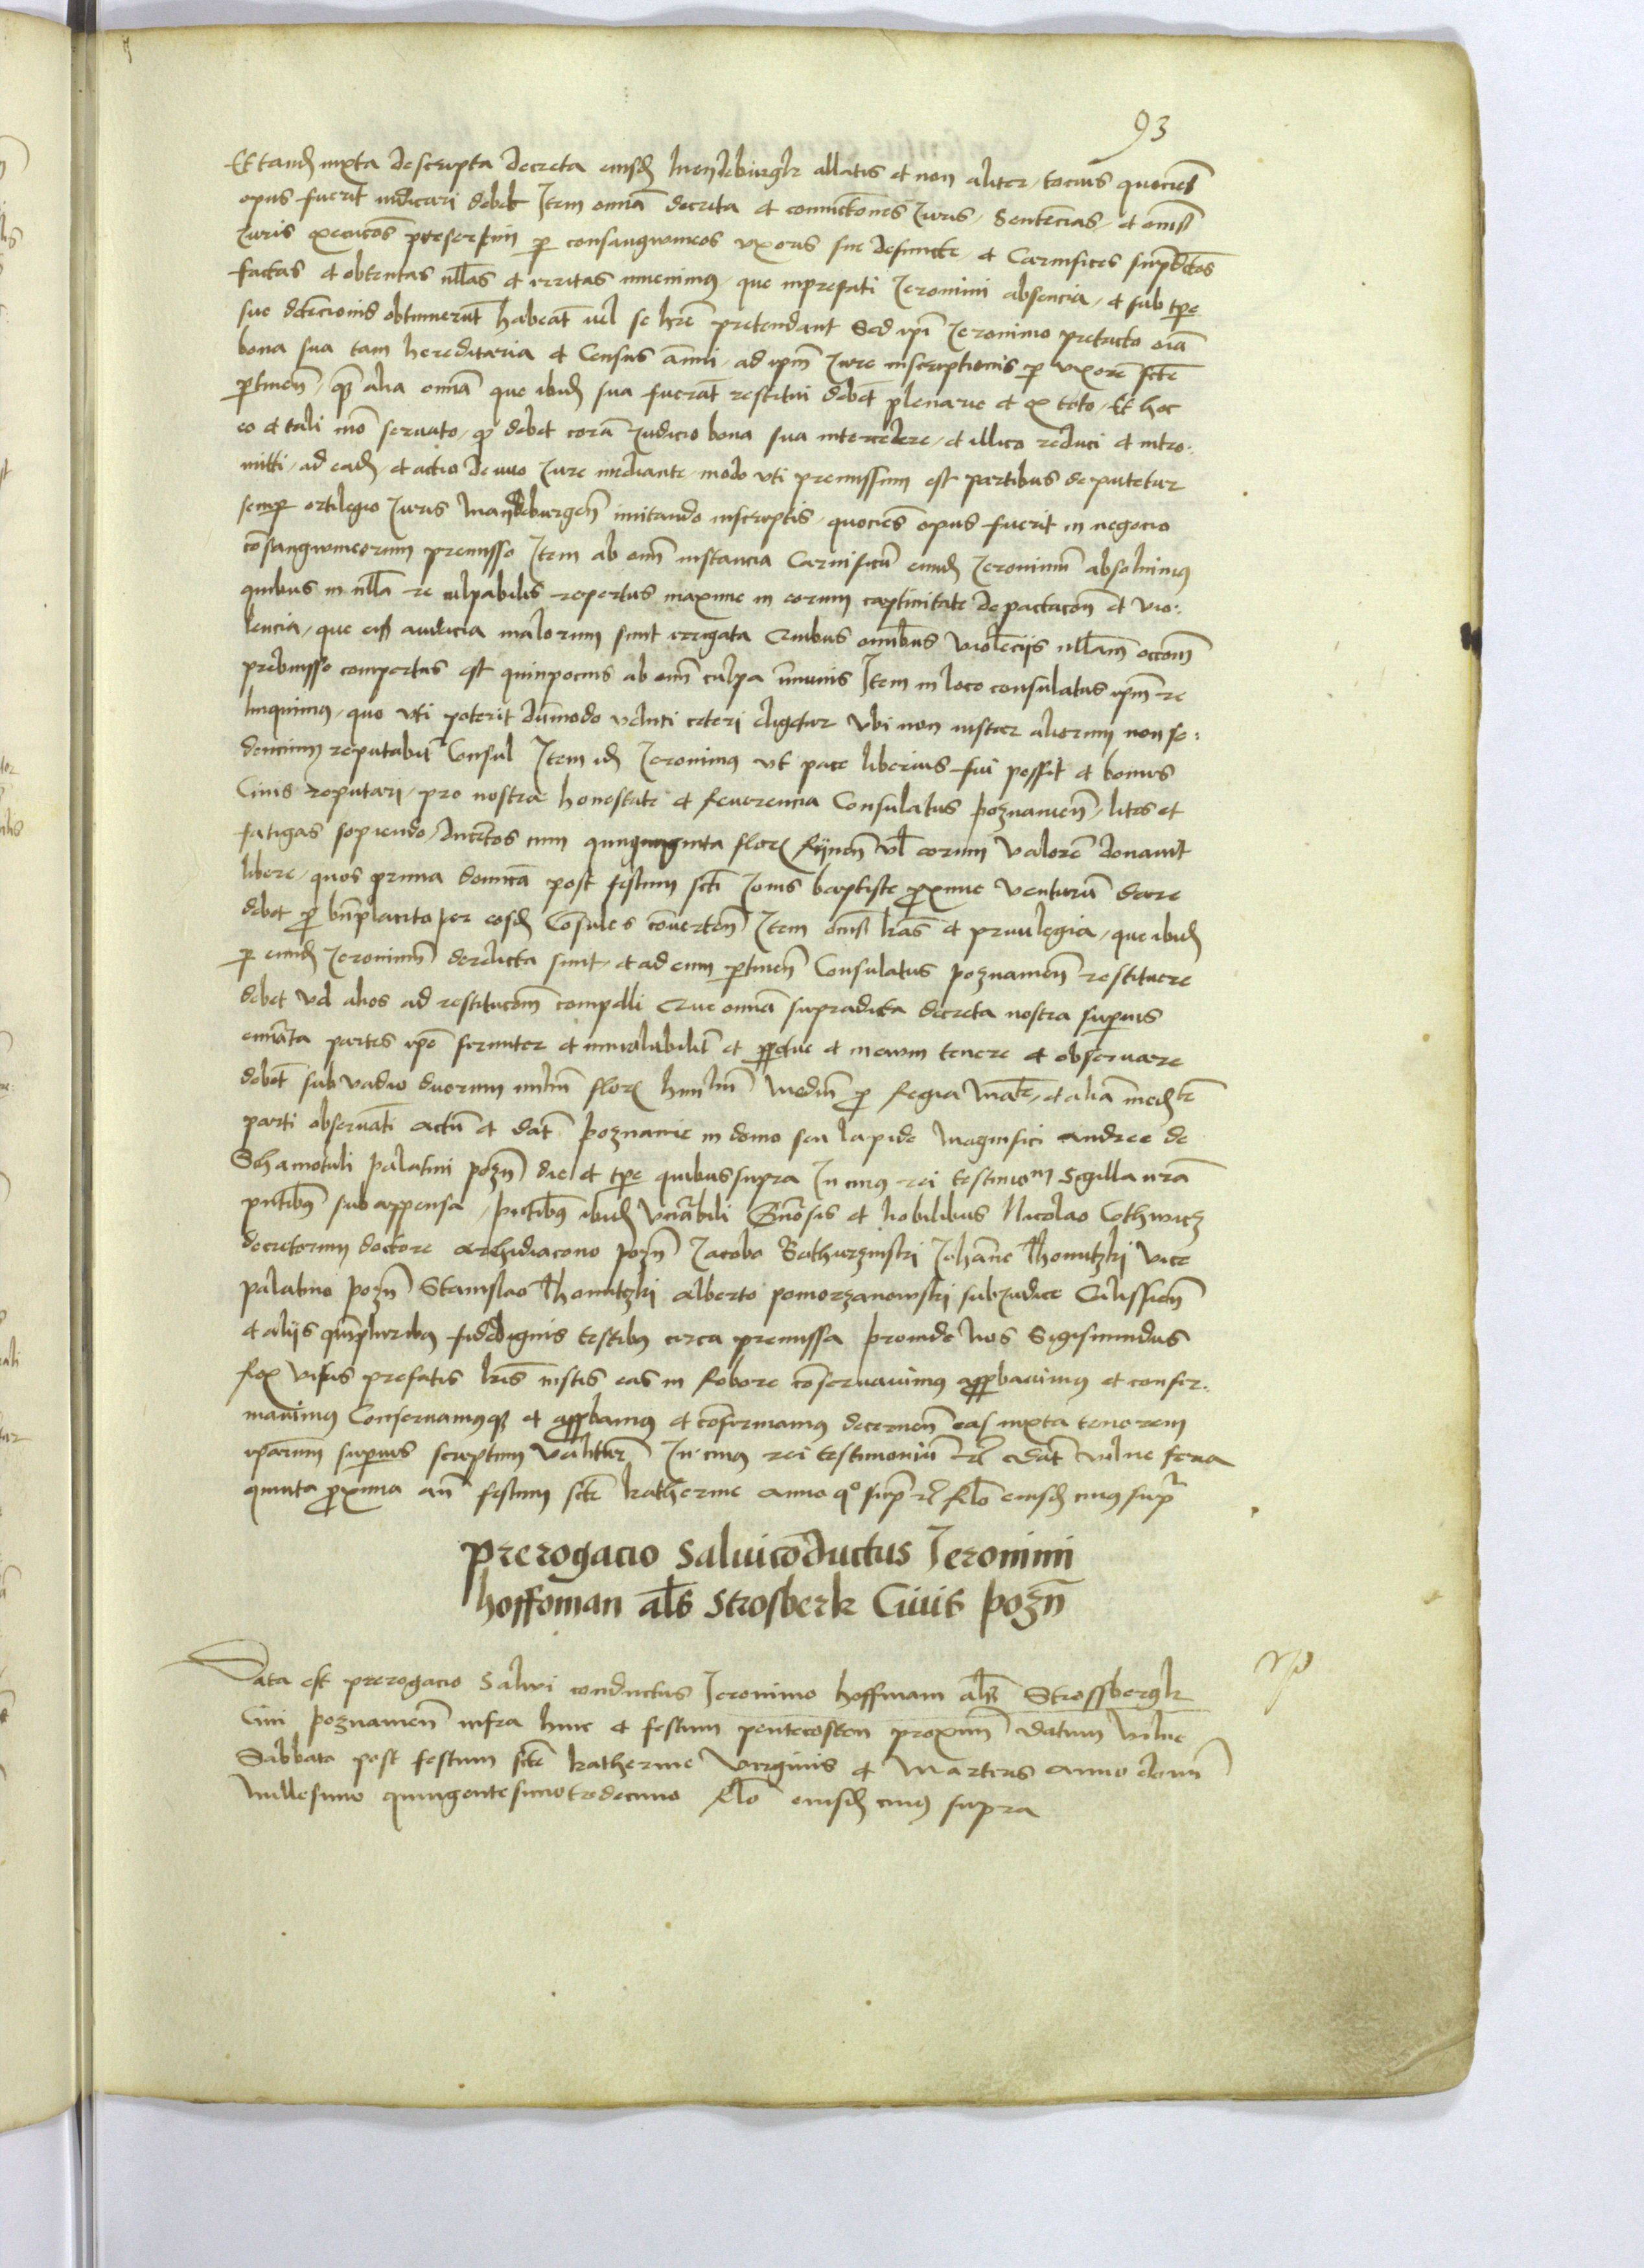 93
Et tand iuxta descripta decreta eiusd Meydeburgk allatis et non aliter, tociens quociens
opus fuerit iudicari debet Item omia decreta et conuictiones Juris, Sentencias, et oms
Juris execucoes presertim p consanguineos vxoris sue defuncte, et Carnifices supradictos
factas et obtentas nllas et irritas inuenimus, que in prefati Jeronimi absencia, et sub tpe
sue detencionis obtinuerut habeat uel se hre pretendant Sed ipi Jeronimo pretacto oia
bona sua tam hereditaria et Census anni, ad ipm Jure inscriptionis p vxore scte
ptinen, q alia omia que ibid sua fuerat restitui debet plenarie et ex toto, Et hoc
eo et tali mo seruato, q debet cora Judicio bona sua intercedere, et illico reduci et intro:
mitti, ad ead, et actio de nuo Jure mediante, modo vti premissum est partibus deputetur
semp ortilegio Juris Maydeburgen imitando inscriptis, quociens opus fuerit in negocio
cosanguineorum premisso Item ab omi instancia Carnificu eund Jeronimu absoluimus
quibus in nlla re culpabilis repertus maxime in eorum captiuitate depactacon et vio:
lencia, que ei audacia malorum sunt irrogata Quibus omibus violeciis nllam occom
prebuisse compertus est quinpocius ab omi culpa imunis Item in loco consulatus ipm re
linquimus, quo vti poterit dummodo veluti ceteri eligetur vbi non instar aliorum non se:
dencium reputabit Consul Item id Jeronimus vt pace liberius frui possit et bonus
Ciuis reputari, pro nostra honestate et Reuerencia Consulatus poznanien, lites et
fatigas sopiendo, ducetos cum quinquaginta flor Rynen vl eorum valore donauit
libere, quos prima dominica post festum scti Jonis baptiste proxime venturu dare
debet p bnplacito per eosd Cosules couerten Item oms lras et priuilegia, que ibid
p eund Jeronimu derelicta sunt, et ad eum ptinen Consulatus poznanien restituere
debet vel alios ad restitucom compelli Que omia supradicta decreta nostra superius
emanta partes ipe firmiter et inuiolabilit et ppetue et in euum tenere et obseruare
debet sub vadio duorum milm flor huncl medin p Regia Mate, et alia medte
parti obseruati Actu et dat poznanie in domo seu lapide Magnifici Andree de
Schamotuli palatini pozn die et tpe quibus supra In cuius rei testimonm Sigilla nra
pntibus subappensa, pntibus ibid Venrabili Gnosis et Nobilibus Nicolao Cothwicz
decretorum doctore Archidiacono pozn Jacobo Bathurzinski Johanne Thomitzki vice
palatino pozn Stanislao Thomitzki Alberto pomorzanowski subJudice Calissien
et alijs quipluribus fidedignis testibus circa premissa proinde Nos Sigismundus
Rex visis prefatis lris iustis eas in Robore conseruauimus approbauimus et confir:
mauimus Conseruamusq et approbamus et confirmamus decernen eas iuxta tenorem
ipsarum superius scriptum valituras In cuius rei testimoniu etc Dat vilne feria
quinta proxima an festum scte Katherine anno quo supra etc Relo eiusd cuius supra
Prerogacio Saluiconductus Jeronimi
hoffoman als Strosberk Ciuis pozn
Data est prerogacio Salui conductus Jeronimo hoffman als Strossbergk
Ciui poznanien infra hinc et festum pentecosten proximu Datum vilne
Sabbato post festum scte Katherine Virginis et Martiris anno domi
Millesimo quingentesimotredecimo Relo eiusd cuius supra